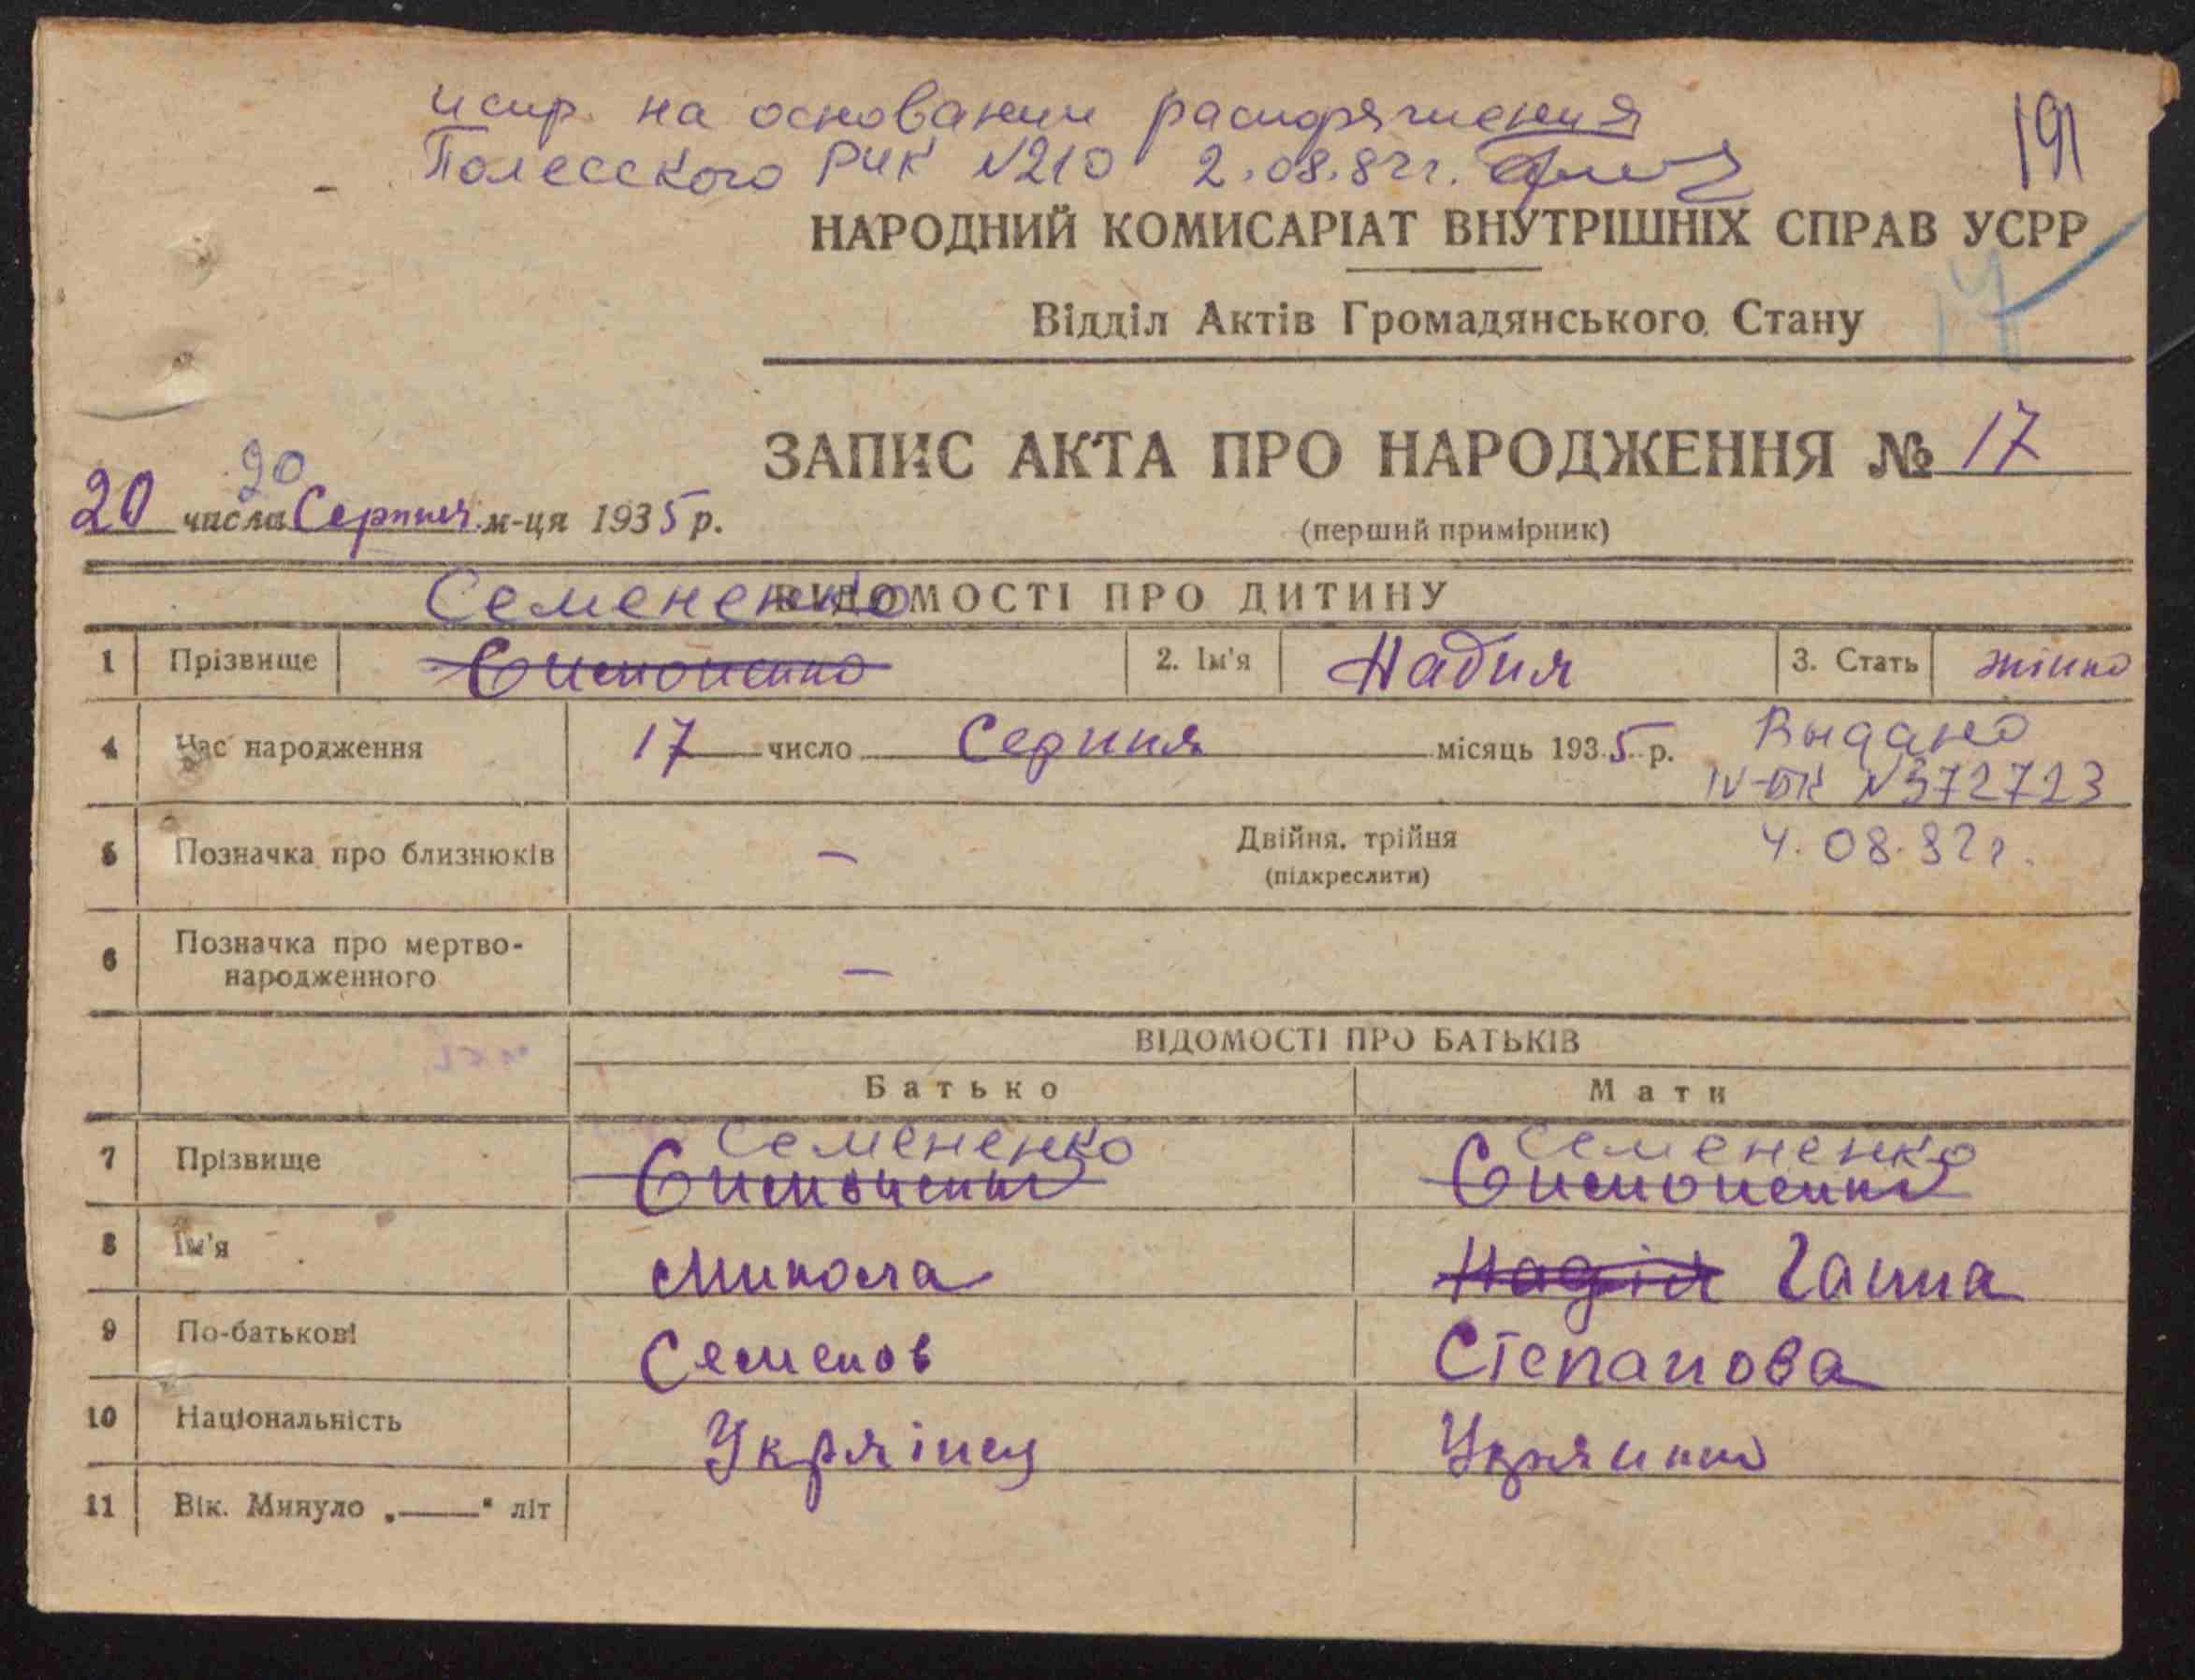 испр. на основании распоряжения
Полесского РИК №210 2.08.82г.
191
НАРОДНИЙ КОМИСАРІАТ ВНУТРІШНІХ СПРАВ УСРР
Відділ Актів Громадянського Стану
17
ЗАПИС АКТА ПРО НАРОДЖЕННЯ № 17
20
20 числа Серпня м-ця 1935 р.
(перший примірник)
Семененко
ВІДОМОСТІ ПРО ДИТИНУ
1 Прізвище Симоненко 2. Ім'я Надия 3. Стать жіно
4 Час народження 17 число Серпня місяць 1935 р. Выдано
IV-БК №372723
5 Позначка про близнюків — Двійня, трійня 4.08.82г.
(підкреслити)
6 Позначка про мертво-
народженного —
ВІДОМОСТІ ПРО БАТЬКІВ
Батько Мати
Семененко Семененко
7 Прізвище Симоненко Симоненко
8 Ім'я Микола Надія Ганна
9 По-батькові Семенов Степанова
10 Національність Укряінец Укряинка
11 Вік. Минуло „——" літ